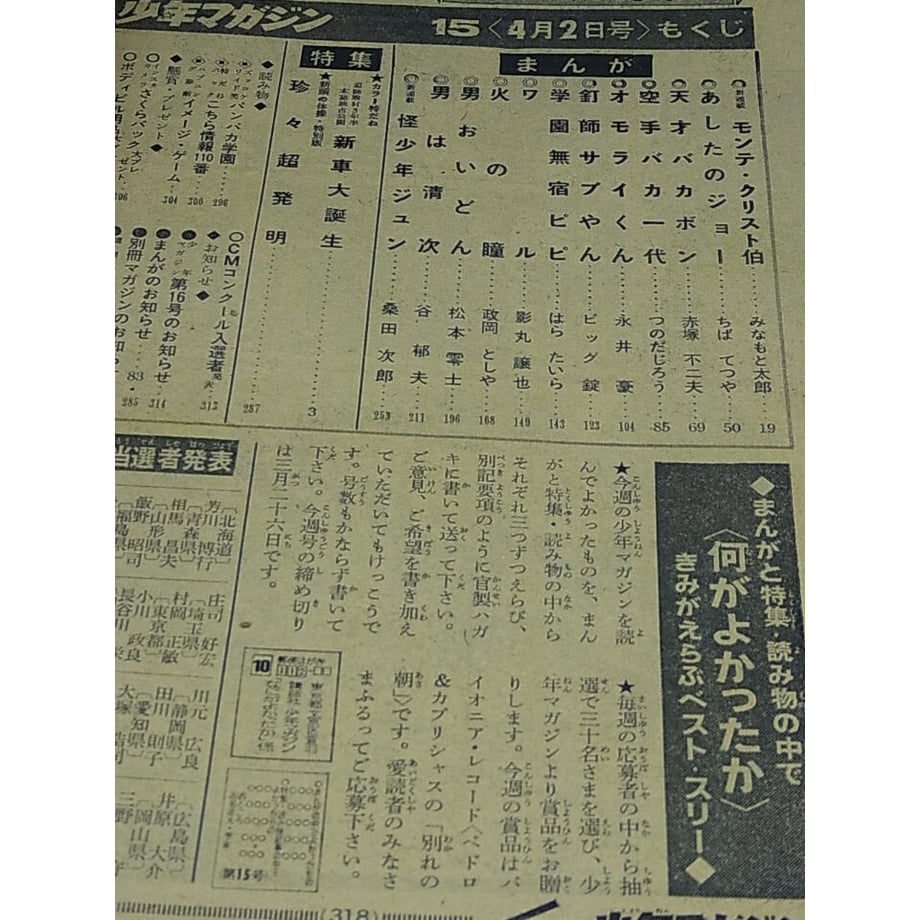 少年マガジン
15〈4月2日号〉もくじ
まんが
◎新連載 モンテ・クリスト伯 みなもと太郎 19
◎あしたのジョー ちば てつや 50
◎天才バカボン 赤塚 不二夫 69
◎空手バカ一代 つのだじろう 85
◎オモライくん 永井 豪 104
◎釘師サブやん ビッグ 錠 123
◎学園無宿ピピ はら たいら 143
◎ワル 影丸 譲也 149
◎火の瞳 政岡 としや 168
◎男おいどん 松本 零士 196
◎男は清次 谷 郁夫 211
◎新連載 怪少年ジュン 桑田 次郎 253
特集
★カラー特だね
新車大誕生 3
★新頭の体操・特別版
珍々超発明 287
◆読み物◆
パンパカ学園 296
こちら情報110番 300
イメージ・ゲーム 304
◆懸賞・プレゼント◆
さくらパック
306
◆お知らせ◆
○CMコンクール入選者発表 313
少年マガジン 第16号のお知らせ 314
まんがのお知らせ 83・285
別冊マガジンのお知
◆まんがと特集・読み物の中で
〈何がよかったか〉
きみがえらぶベスト・スリー◆
★今週の少年マガジンを読
んでよかったものを、まん
がと特集・読み物の中から
それぞれ三つずつえらび、
別記要項のように官製ハガ
キに書いて送って下さい。
ご意見、ご希望を書き加え
ていただいてもけっこうで
す。号数もかならず書いて
下さい。今週号の締め切り
は三月二十六日です。
★毎週の応募者の中から抽
選で三十名さまを選び、少
年マガジンより賞品をお贈
りします。今週の賞品はパ
イオニア・レコード〈ペドロ
&カプリシャスの「別れの
朝」〉です。愛読者のみなさ
まふるってご応募下さい。
郵便はがき
10
112
講談社
少年マガジン
第15号
当選者発表
〔北海道〕
芳川 博行
〔青森県〕
相馬 昌夫
〔山形県〕
飯野 昭司
〔福島県〕
庄司 好宏
〔埼玉県〕
村岡 正敏
〔東京都〕
小川 政良
長谷川
川元 広良
〔静岡県〕
田川 則子
〔愛知県〕
大塚
〔広島県〕
井原 大介
〔岡山県〕
(318)